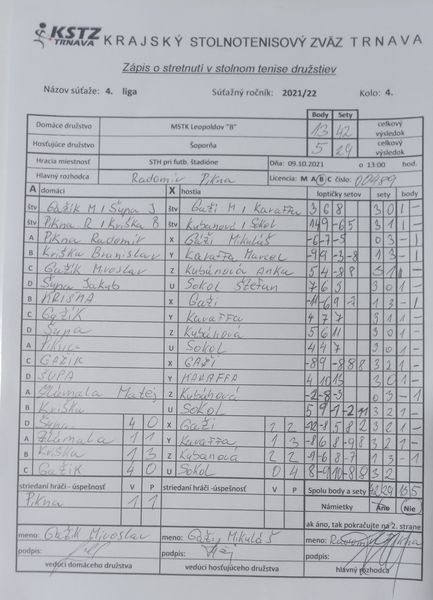 KSTZ
TRNAVA
KRAJSKÝ STOLNOTENISOVÝ ZVÄZ TRNAVA
Zápis o stretnutí v stolnom tenise družstiev
Názov súťaže: 4. liga Súťažný ročník: 2021/22 Kolo: 4.
Body Sety
Domáce družstvo MSTK Leopoldov "B" 13 42 celkový výsledok
Hosťujúce družstvo Šoporňa 5 29 celkový výsledok
Hracia miestnosť STH pri futb. štadióne Dňa: 09.10.2021 o 13:00 hod.
Hlavný rozhodca Radomír Pikna Licencia: M A B C číslo: 00489
A domáci X hostia loptičky setov sety body
štv Gažík M / Šupa J štv Gaži M / Karaffa 3 6 8 3 0 1 -
štv Pikna R / Kriška B štv Kubánová / Sokol 3 1 1 -
A Pikna Radomír X Gaži Mikuláš -6 -7 -5 0 3 - 1
B Kriška Branislav Y Karaffa Marcel 1 3 - 1
C Gažík Miroslav Z Kubánová Anka 5 4 -8 8 3 1 1
D Šupa Jakub U Sokol Štefan 7 6 5 3 0 1 -
B Kriška X Gaži 1 3 - 1
C Gažík Y Karaffa 4 7 7 3 1
D Šupa Z Kubánová 5 6 11 3 0 1 -
A Pikna U Sokol 4 4 7 3 0 1 -
C Gažík X Gaži -8 9 -8 8 8 3 2 1 -
D Šupa Y Karaffa 4 10 13 3 0 1 -
A Hlamala Matej Z Kubánová -2 -8 -3 0 3 - 1
B Kriška U Sokol 5 9 1 -2 11 3 2 1 -
D Šupa 4 0 X Gaži 2 2 3 2 1 -
A Hlamala 1 1 Y Karaffa 1 3 -8 6 8 -9 8 3 2 1 -
B Kriška 1 3 Z Kubánová 2 2 -9 6 8 -7 1 3 - 1
C Gažík 4 0 U Sokol 0 4 8 -9 10 -8 9 3 2
striedaní hráči -úspešnosť V P striedaní hráči -úspešnosť V P Spolu body a sety 42 29 13 5
Pikna 1 1 Námietky Áno Nie
ak áno, tak pokračujte na 2. strane
meno: Gažík Miroslav meno: Gaži Mikuláš meno: Radomír Pikna
podpis: podpis: podpis:
vedúci domáceho družstva vedúci hosťujúceho družstva hlavný rozhodca